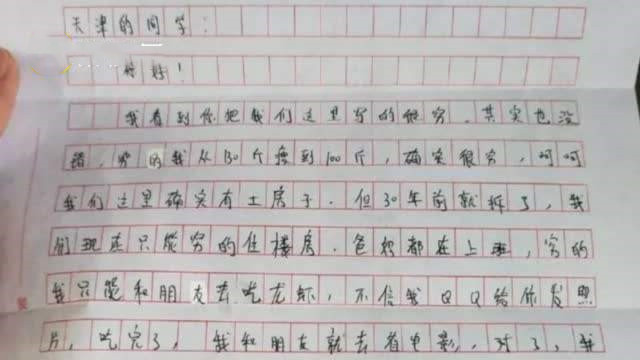 天津的同学：
你好！
我看到你把我们这里写的很穷，其实也没
错，穷的我从130斤瘦到100斤，确实很穷，呵呵
我们这里确实有土房子，但30年前就拆了，我
们现在只能穷的住楼房，爸妈都在上班，穷的
我只能和朋友去吃龙虾，不信我QQ给你发照
片，吃完了，我和朋友就去看电影，对了，我